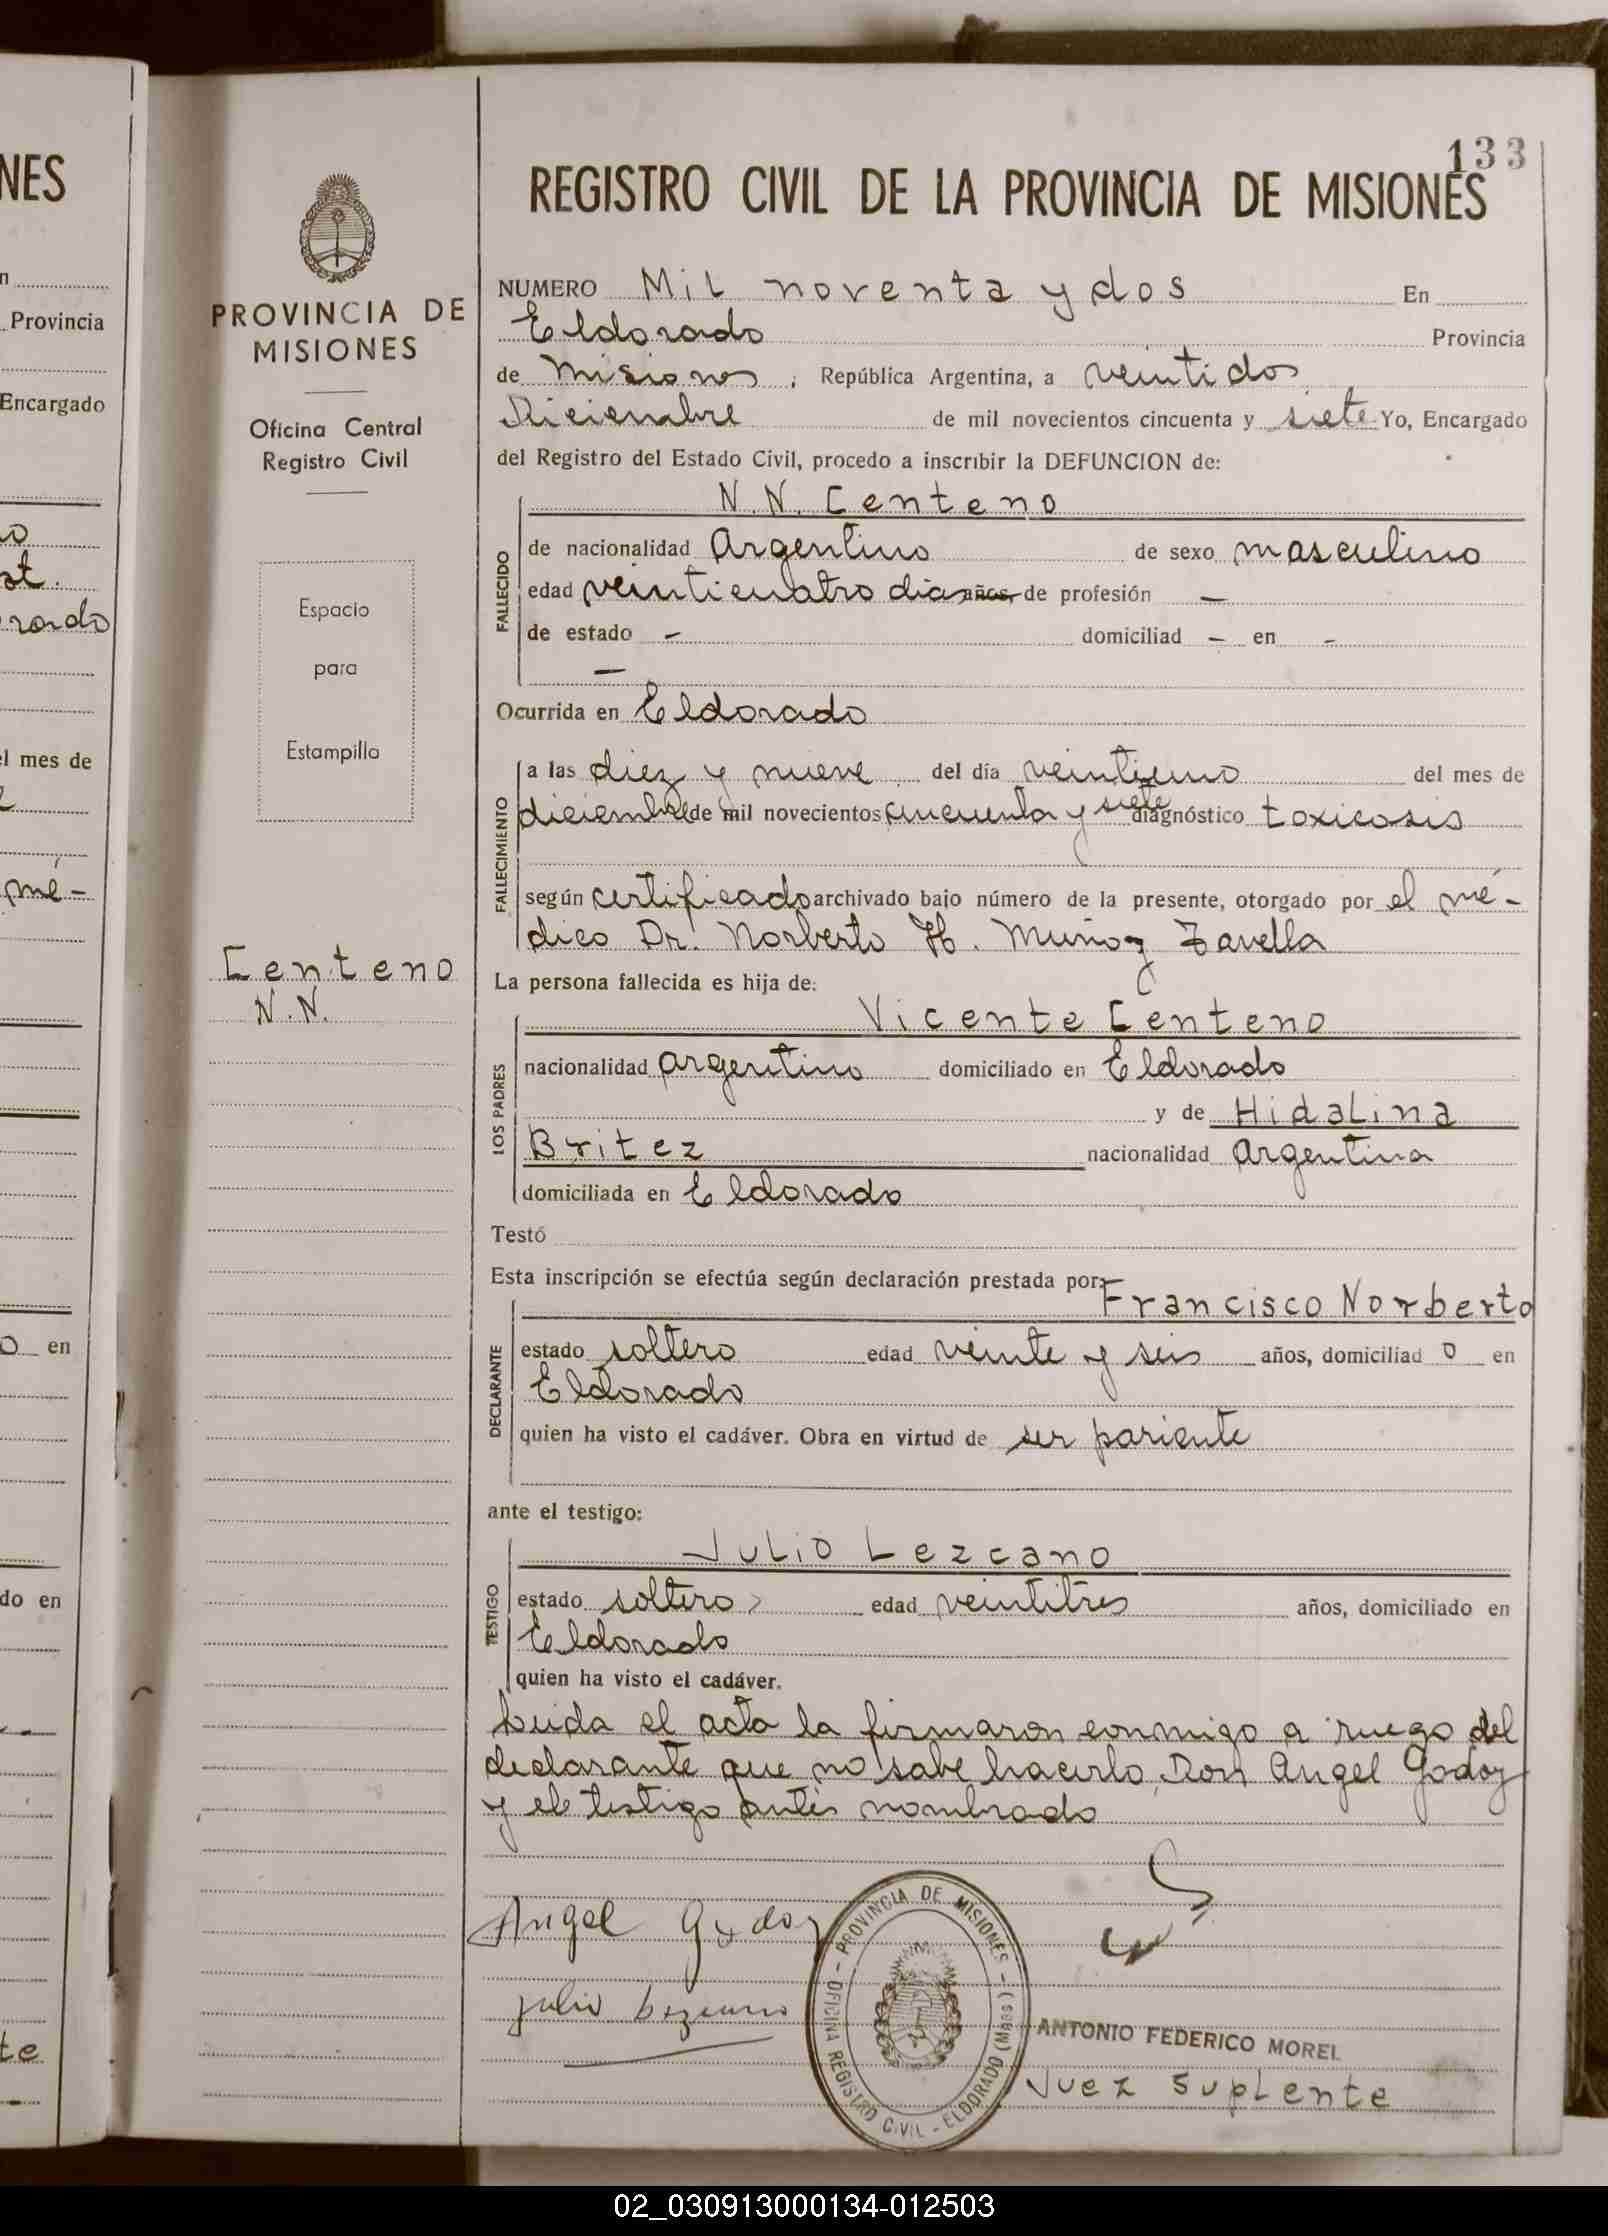 NES
n
Provincia
Encargado
o
st.
rado
el mes de
mé-
o en
do en
te
133
PROVINCIA DE
MISIONES
Oficina Central
Registro Civil
Espacio
para
Estampilla
Centeno
N.N.
REGISTRO CIVIL DE LA PROVINCIA DE MISIONES
NUMERO Mil noventa y dos En
Eldorado Provincia
de Misiones, República Argentina, a veintidos
Diciembre de mil novecientos cincuenta y siete Yo, Encargado
del Registro del Estado Civil, procedo a inscribir la DEFUNCION de:
N.N. Centeno
FALLECIDO
de nacionalidad Argentino de sexo masculino
edad veinticuatro dias años, de profesión —
de estado — domiciliad — en —
—
Ocurrida en Eldorado
FALLECIMIENTO
a las diez y nueve del día veintiuno del mes de
diciembre de mil novecientos cincuenta y siete diagnóstico toxicosis
según certificado archivado bajo número de la presente, otorgado por el mé-
dico Dr. Norberto H. Muñoz Zavella
La persona fallecida es hija de:
LOS PADRES
Vicente Centeno
nacionalidad argentino domiciliado en Eldorado
y de Hidalina
Britez nacionalidad argentina
domiciliada en Eldorado
Testó
Esta inscripción se efectúa según declaración prestada por:
Francisco Norberto
DECLARANTE
estado soltero edad veinte y seis años, domiciliad o en
Eldorado
quien ha visto el cadáver. Obra en virtud de ser pariente
ante el testigo:
Julio Lezcano
TESTIGO
estado soltero edad veintitres años, domiciliado en
Eldorado
quien ha visto el cadáver.
Leida el acta la firmaron conmigo a ruego del
declarante que no sabe hacerlo, Don Angel Godoy
y el testigo antes nombrado
Angel Godoy
Julio Lezcano
PROVINCIA DE MISIONES - OFICINA REGISTRO CIVIL - ELDORADO (Mnes)
ANTONIO FEDERICO MOREL
Juez suplente
02_030913000134-012503